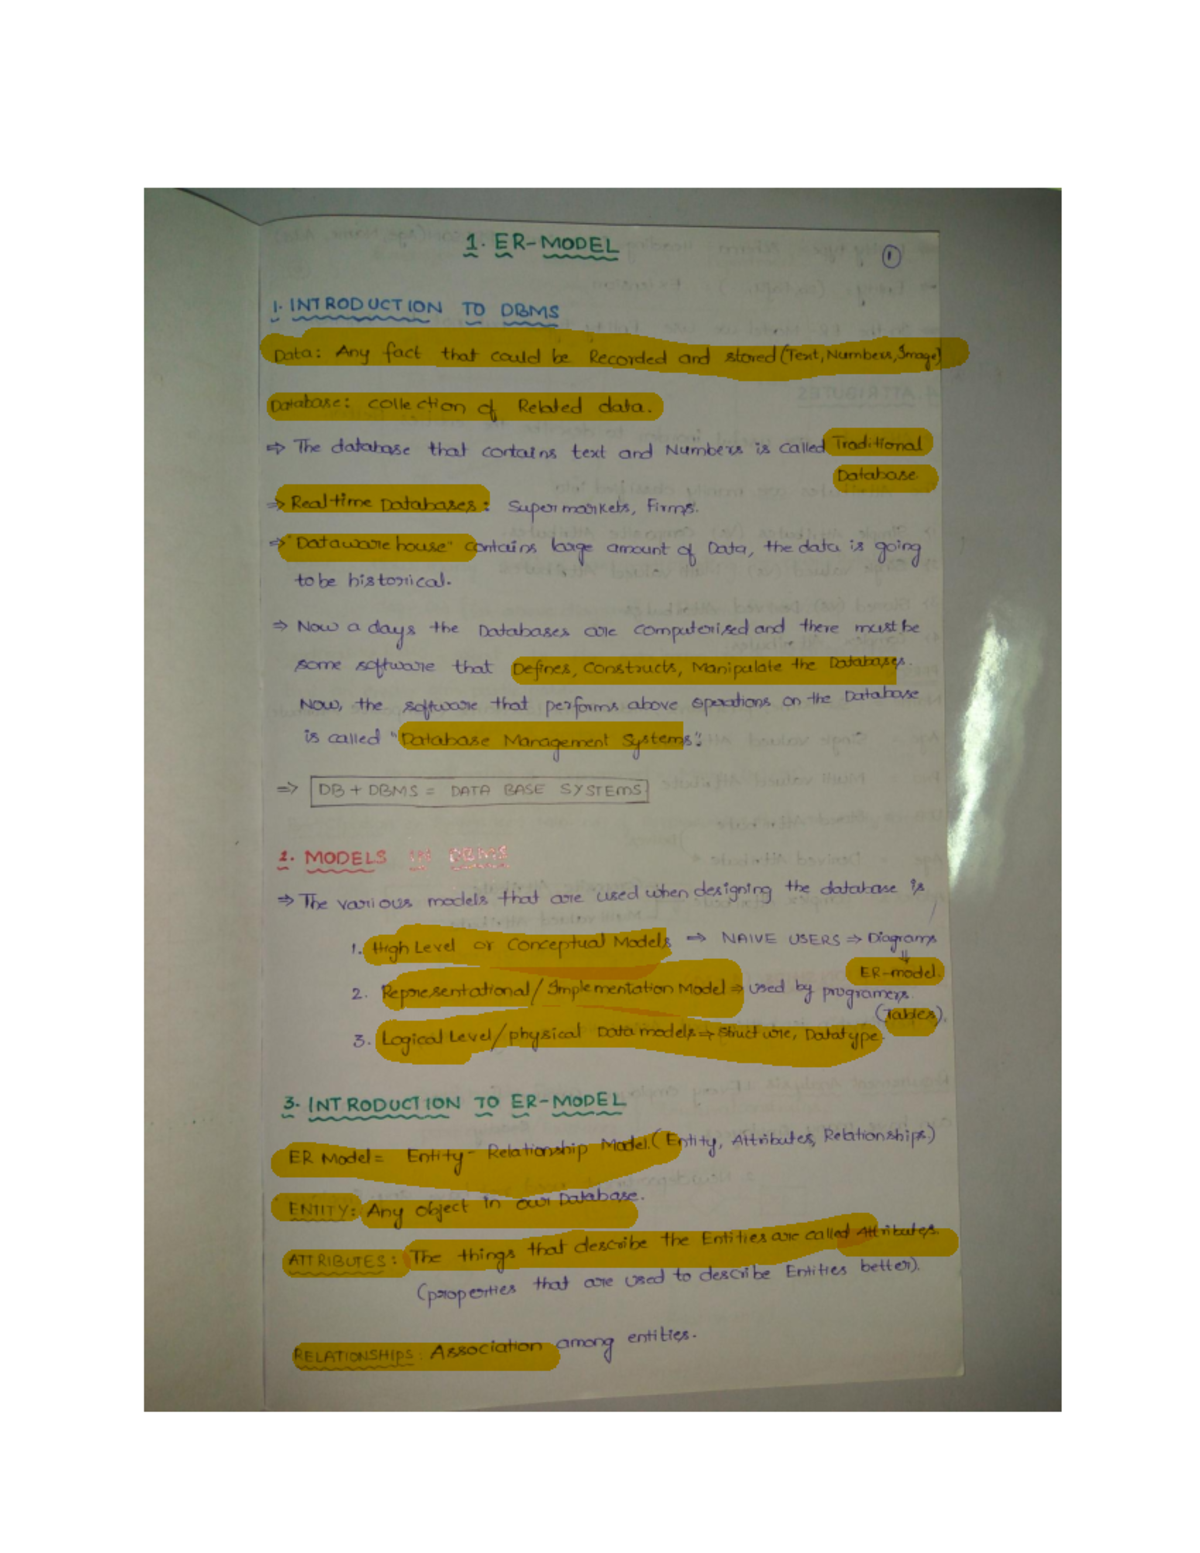 1. ER-MODEL
1
1. INTRODUCTION TO DBMS
Data: Any fact that could be Recorded and stored (Text, Numbers, Image)
Database: collection of Related data.
⇒ The database that contains text and Numbers is called Traditional
Database
⇒ Realtime Databases: Super markets, Firms.
⇒ "Dataware house" contains large amount of Data, the data is going
to be historical.
⇒ Now a days the Databases are computerised and there must be
some software that Defines, Constructs, Manipulate the Databases.
Now, the software that performs above operations on the Database
is called "Database Management Systems".
⇒ DB + DBMS = DATA BASE SYSTEMS
2. MODELS IN DBMS
⇒ The various models that are used when designing the database is
1. High Level or Conceptual Models ⇒ NAIVE USERS ⇒ Diagrams
⇓
ER-model.
2. Representational / Implementation Model ⇒ used by programers.
(Tables).
3. Logical Level / physical Data models ⇒ Structure, Datatype.
3. INTRODUCTION TO ER-MODEL
ER Model = Entity - Relationship Model. (Entity, Attributes, Relationships.)
ENTITY: Any object in our Database.
ATTRIBUTES: The things that describe the Entities are called Attributes.
(properties that are used to describe Entities better).
RELATIONSHIPS: Association among entities.